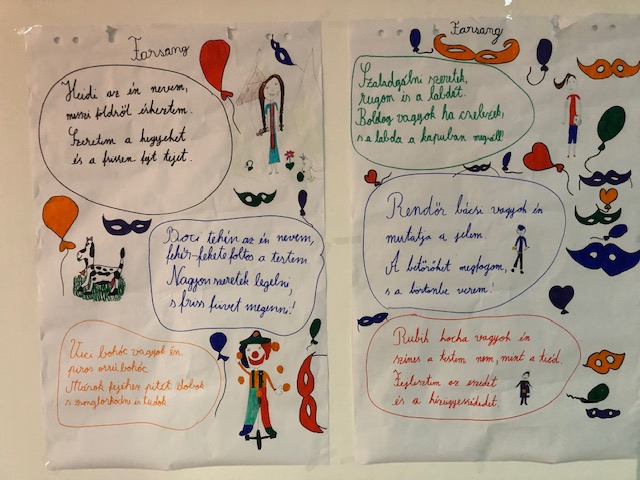 Farsang
Heidi az én nevem,
messzi földről érkeztem.
Szeretem a hegyeket
és a frissen fejt tejet.
Boci tehén az én nevem,
fehér-fekete foltos a testem.
Nagyon szeretek legelni,
s friss füvet megenni!
Utcai bohóc vagyok én,
piros orrú bohóc.
Mások fejéhez pitét dobok
s zsonglőrködni is tudok.
Farsang
Szaladgálni szeretek,
rúgom is a labdát.
Boldog vagyok ha cselezek,
s a labda a kapuban megáll!
Rendőr bácsi vagyok én
mutatja a jelem.
A betörőket megfogom,
s a börtönbe verem!
Rubik kocka vagyok én
színes a testem nem, mint a tiéd.
Fejlesztem az eszedet
és a kézügyességedet.